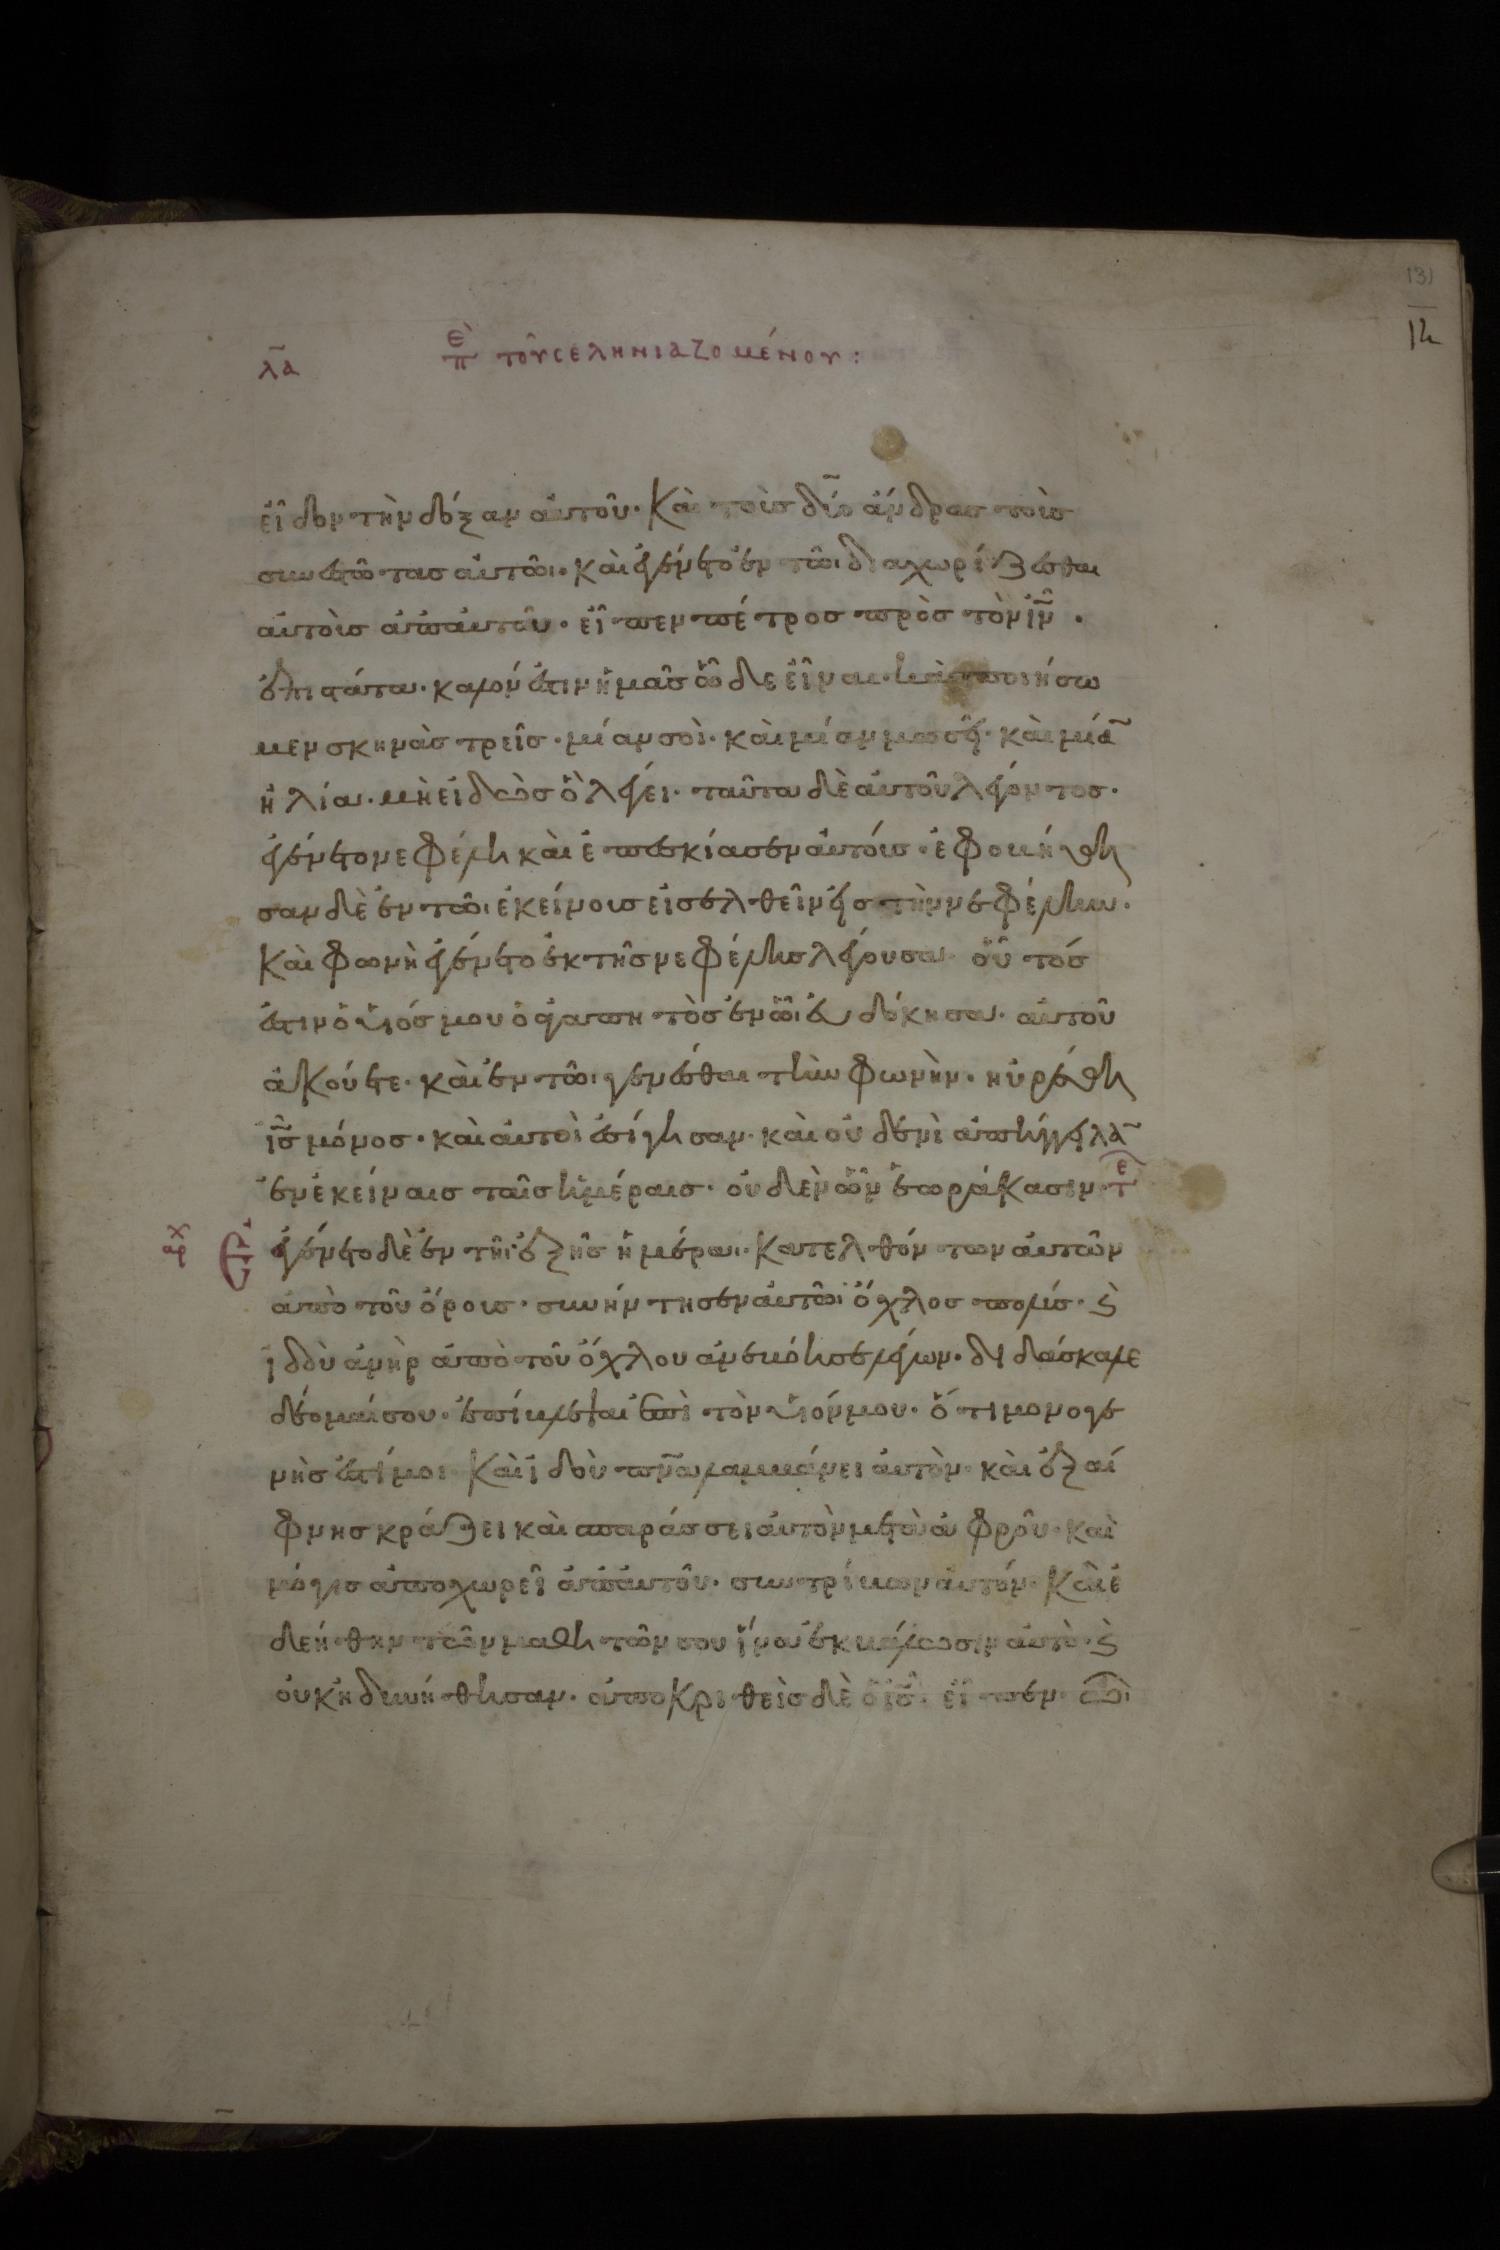 131
12
λα ἐπ τοῦ σεληνιαζομένου:
εἶδον τὴν δόξαν αὐτοῦ· Καὶ τοὺς δύο ἄνδρας τοὺς
συνεστῶτας αὐτῶι· καὶ ἐγένετο ἐν τῶι διαχωρίζεσθαι
αὐτοὺς ἀπ' αὐτοῦ· εἶπεν πέτρος πρὸς τὸν ἰν̅·
ἐπιστάτα· καλόν ἐστιν ἡμᾶς ὧδε εἶναι· καὶ ποιήσω
μεν σκηνὰς τρεῖς· μίαν σοὶ· καὶ μίαν μωσῆ· καὶ μία̅
ἠλία· μὴ εἰδὼς ὃ λέγει· ταῦτα δὲ αὐτοῦ λέγοντος·
ἐγένετο νεφέλη καὶ ἐπεσκίασεν αὐτούς· ἐφοβήθη
σαν δὲ ἐν τῶι ἐκείνους εἰσελθεῖν εἰς τὴν νεφέλην·
Καὶ φωνὴ ἐγένετο ἐκ τῆς νεφέλης λέγουσα· οὗτός
ἐστιν ὁ υἱός μου ὁ ἀγαπητὸς ἐν ὧι εὐδόκησα· αὐτοῦ
ἀκούετε· καὶ ἐν τῶι γενέσθαι τὴν φωνὴν· ηὑρέθη
ἰς̅ μόνος· καὶ αὐτοὶ ἐσίγησαν· καὶ οὐδενὶ ἀπήγγειλα̅
ἐν ἐκείναις ταῖς ἡμέραις· οὐδὲν ὧν ἑωράκασιν· τε
αρχ Ἐγένετο δὲ ἐν τῆι ἑξῆς ἡμέραι· κατελθόντων αὐτῶν
ἀπὸ τοῦ ὄρους· συνήντησεν αὐτῶι ὄχλος πολύς· ϗ
ἰδοὺ ἀνὴρ ἀπὸ τοῦ ὄχλου ἀνεβόησε λέγων· διδάσκαλε
δέομαί σου· ἐπίβλεψαι ἐπὶ τὸν υἱόν μου· ὅτι μονογε
νής ἐστί μοι· Καὶ ἰδοὺ πν̅α λαμβάνει αὐτὸν· καὶ ἐξαί
φνης κράζει καὶ σπαράσσει αὐτὸν μετὰ ἀφροῦ· καὶ
μόγις ἀποχωρεῖ ἀπ' αὐτοῦ· συντρίβων αὐτόν· Καὶ ἐ
δεήθην τῶν μαθητῶν σου ἵνα ἐκβάλωσιν αὐτὸ· ϗ
οὐκ ἠδυνήθησαν· ἀποκριθεὶς δὲ ὁ ἰς̅· εἶπεν·